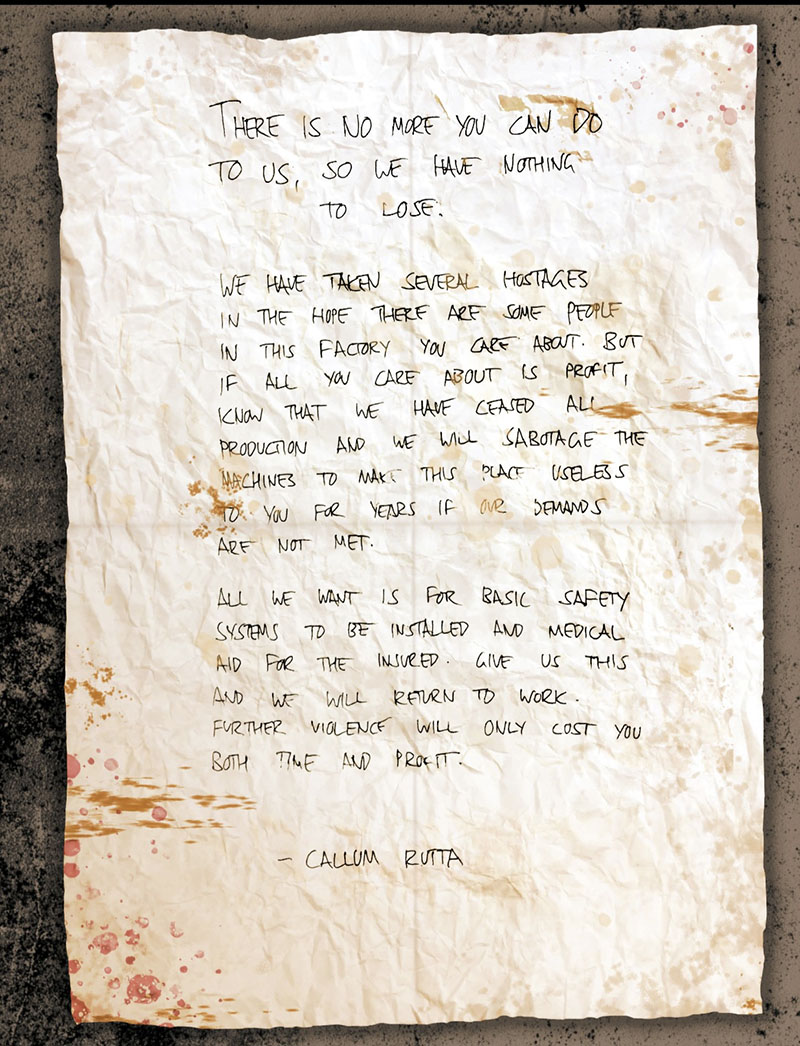 THERE IS NO MORE YOU CAN DO
TO US, SO WE HAVE NOTHING
TO LOSE.
WE HAVE TAKEN SEVERAL HOSTAGES
IN THE HOPE THERE ARE SOME PEOPLE
IN THIS FACTORY YOU CARE ABOUT. BUT
IF ALL YOU CARE ABOUT IS PROFIT,
KNOW THAT WE HAVE CEASED ALL
PRODUCTION AND WE WILL SABOTAGE THE
MACHINES TO MAKE THIS PLACE USELESS
TO YOU FOR YEARS IF OUR DEMANDS
ARE NOT MET.
ALL WE WANT IS FOR BASIC SAFETY
SYSTEMS TO BE INSTALLED AND MEDICAL
AID FOR THE INSURED. GIVE US THIS
AND WE WILL RETURN TO WORK.
FURTHER VIOLENCE WILL ONLY COST YOU
BOTH TIME AND PROFIT.
- CALLUM RUTTA